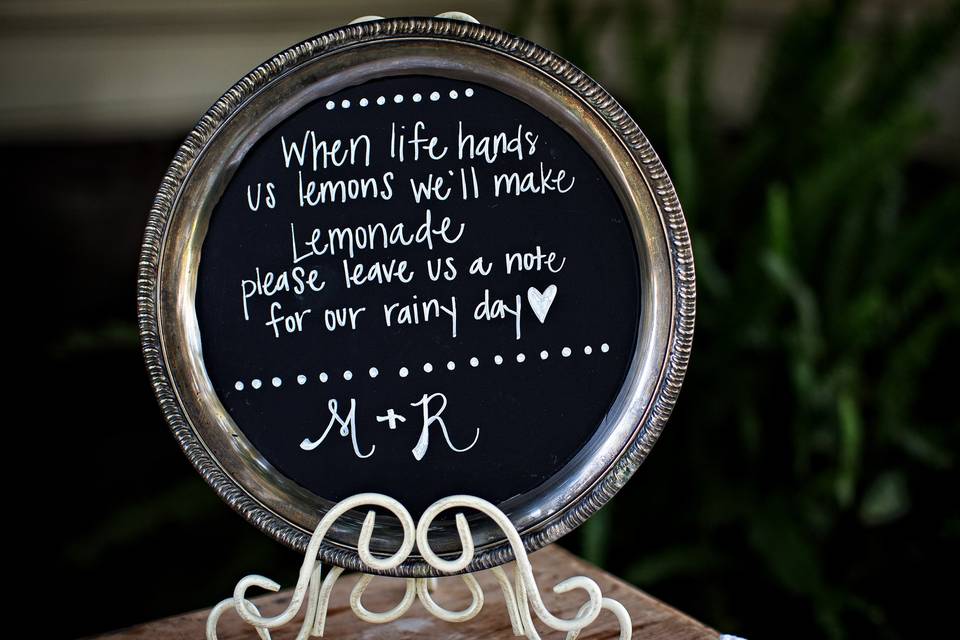 When life hands
us lemons we'll make
Lemonade
please leave us a note
for our rainy day♥
M + R